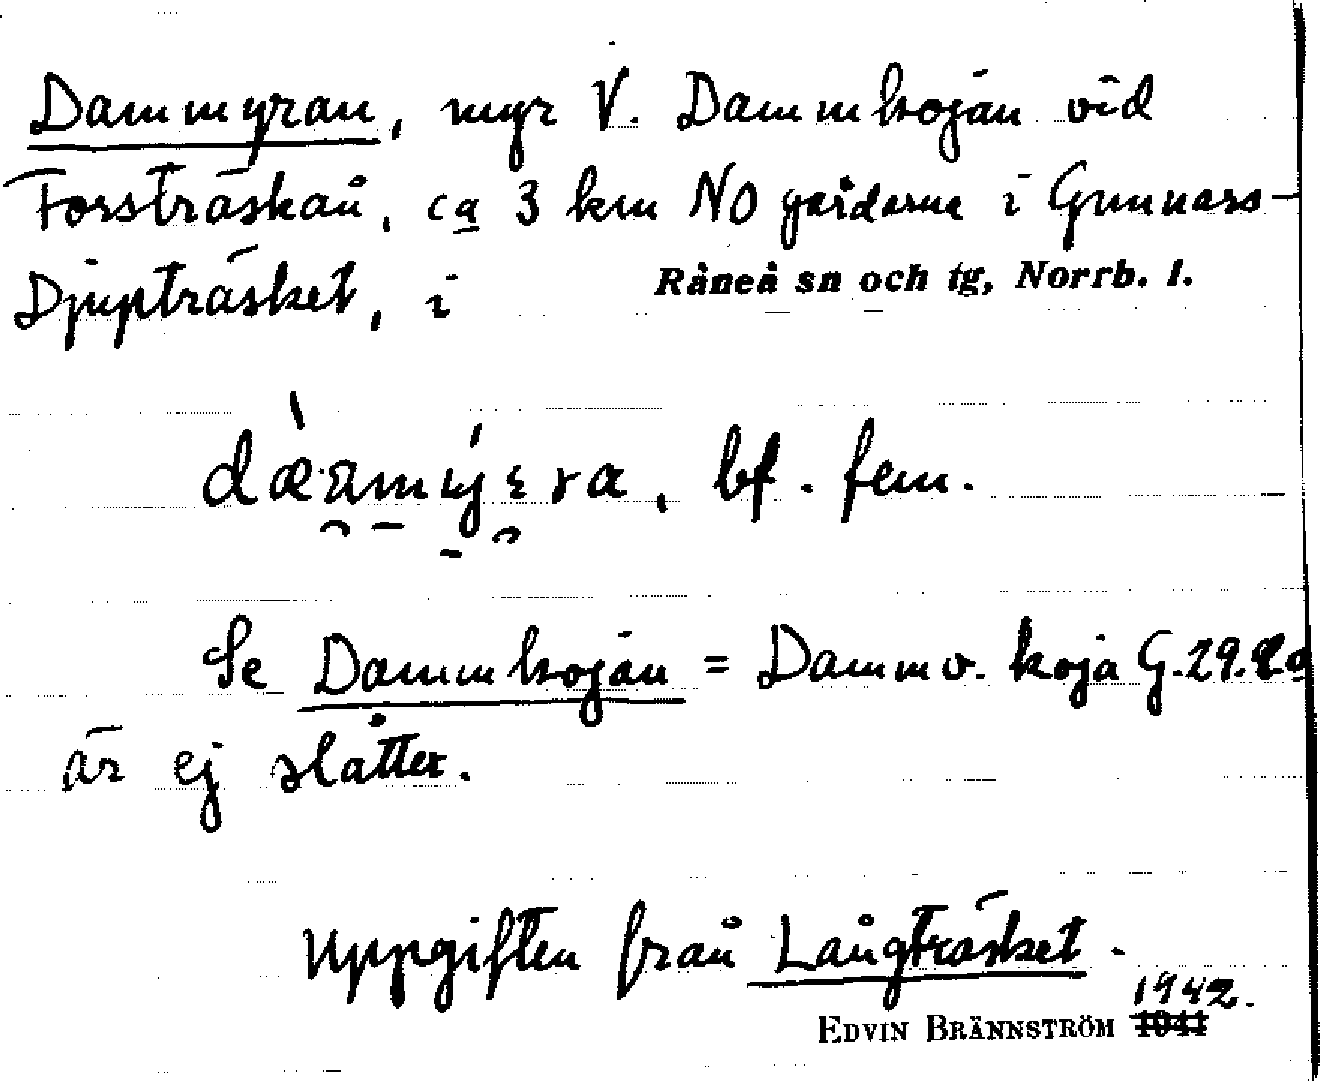 Dammyran, myr V. Dammkojan vid
Forsträskån, ca 3 km NO gårdarne i Gunnars-
Djupträsket, i Råneå sn och tg, Norrb. l.
bf. fem.
Se Dammkojan = Dammv. koja G.29.
är ej slåtter.
Uppgiften från Långträsket.
1942.
EDVIN BRÄNNSTRÖM 1941